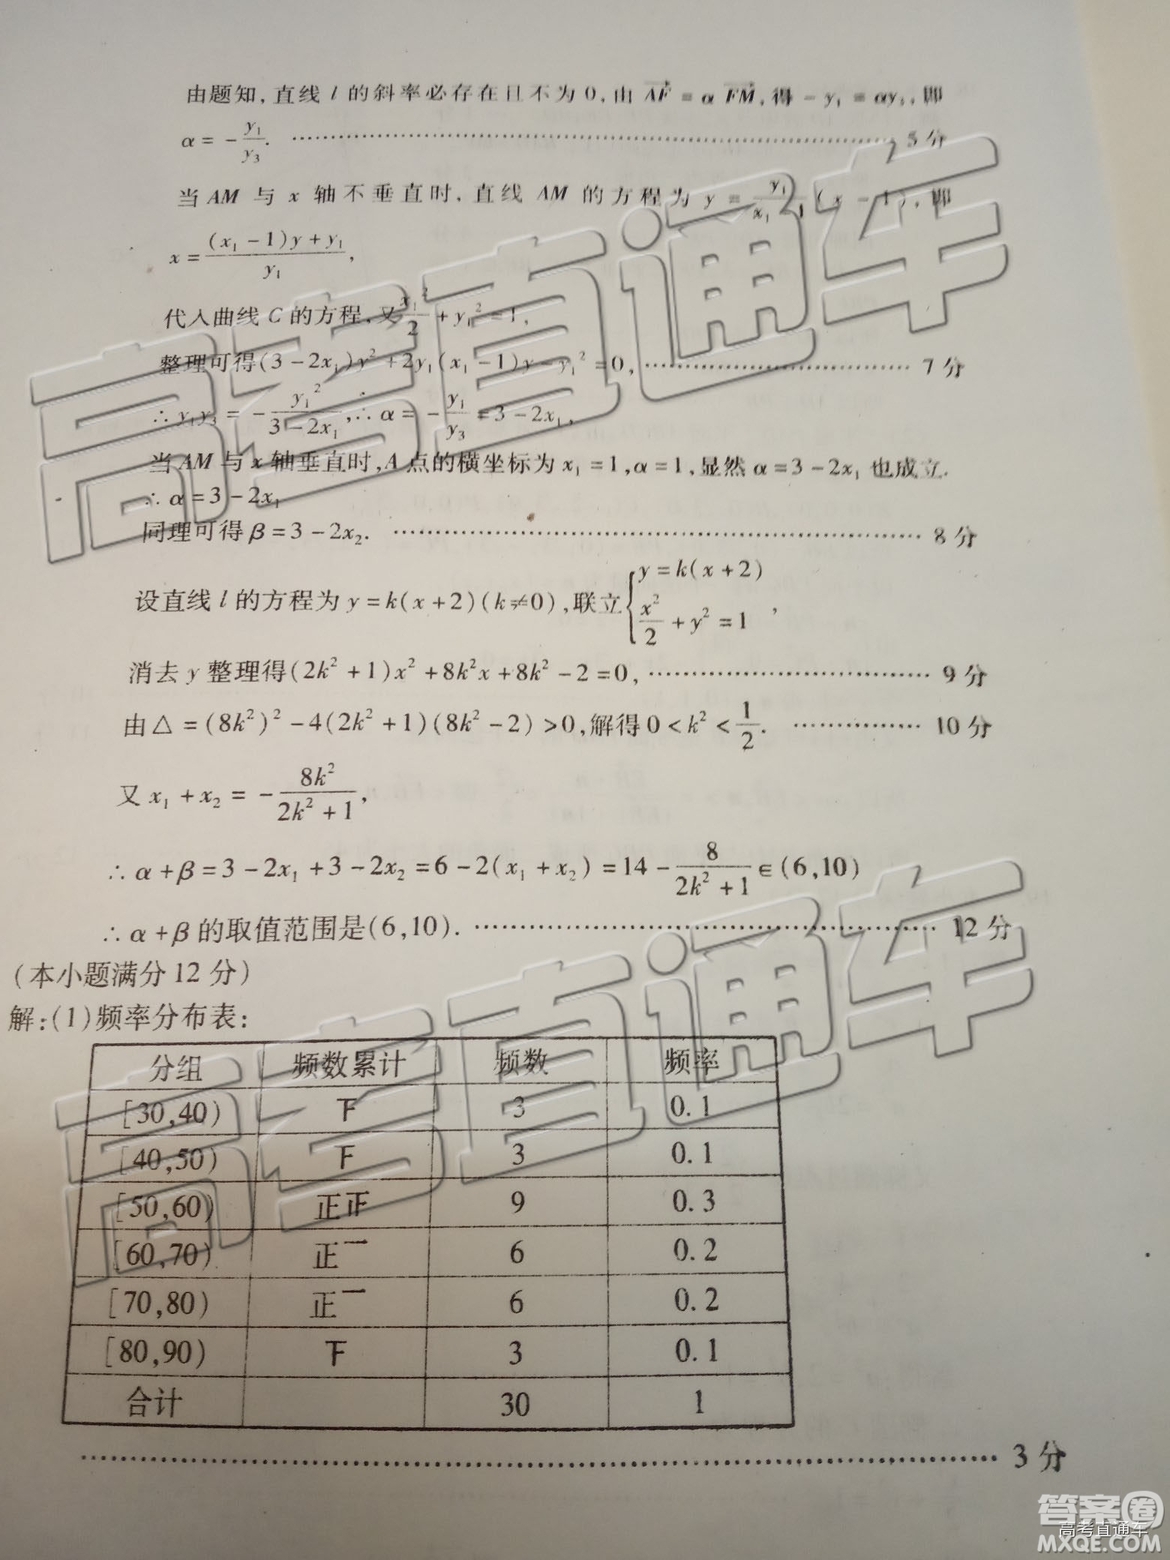 由题知,直线 l 的斜率必存在且不为 0,由 AF = α FM,得 - y₁ = αy₃,即
α = - y₁/y₃. …… 5 分
当 AM 与 x 轴不垂直时,直线 AM 的方程为 y = y₁/(x₁ - 1) (x - 1),即
x = ((x₁ - 1)y + y₁)/y₁,
代入曲线 C 的方程,又 x₁²/2 + y₁² = 1,
整理可得(3 - 2x₁)y² + 2y₁(x₁ - 1)y - y₁² = 0, …… 7 分
∴ y₁y₃ = - y₁²/(3 - 2x₁),∴ α = - y₁/y₃ = 3 - 2x₁,
当 AM 与 x 轴垂直时,A 点的横坐标为 x₁ = 1,α = 1,显然 α = 3 - 2x₁ 也成立.
∴ α = 3 - 2x₁
同理可得 β = 3 - 2x₂. …… 8 分
设直线 l 的方程为 y = k(x + 2)(k ≠ 0),联立{y = k(x + 2) x²/2 + y² = 1,
消去 y 整理得(2k² + 1)x² + 8k²x + 8k² - 2 = 0, …… 9 分
由 △ = (8k²)² - 4(2k² + 1)(8k² - 2) > 0,解得 0 < k² < 1/2. …… 10 分
又 x₁ + x₂ = - 8k²/(2k² + 1),
∴ α + β = 3 - 2x₁ + 3 - 2x₂ = 6 - 2(x₁ + x₂) = 14 - 8/(2k² + 1) ∈ (6,10)
∴ α + β 的取值范围是(6,10). …… 12 分
(本小题满分 12 分)
解:(1)频率分布表:
分组 频数累计 频数 频率
[30,40) 下 3 0.1
[40,50) 下 3 0.1
[50,60) 正正 9 0.3
[60,70) 正一 6 0.2
[70,80) 正一 6 0.2
[80,90) 下 3 0.1
合计 30 1
…… 3 分
高考直通车
高考直通车
答案圈
高考直通车
MXQE.COM